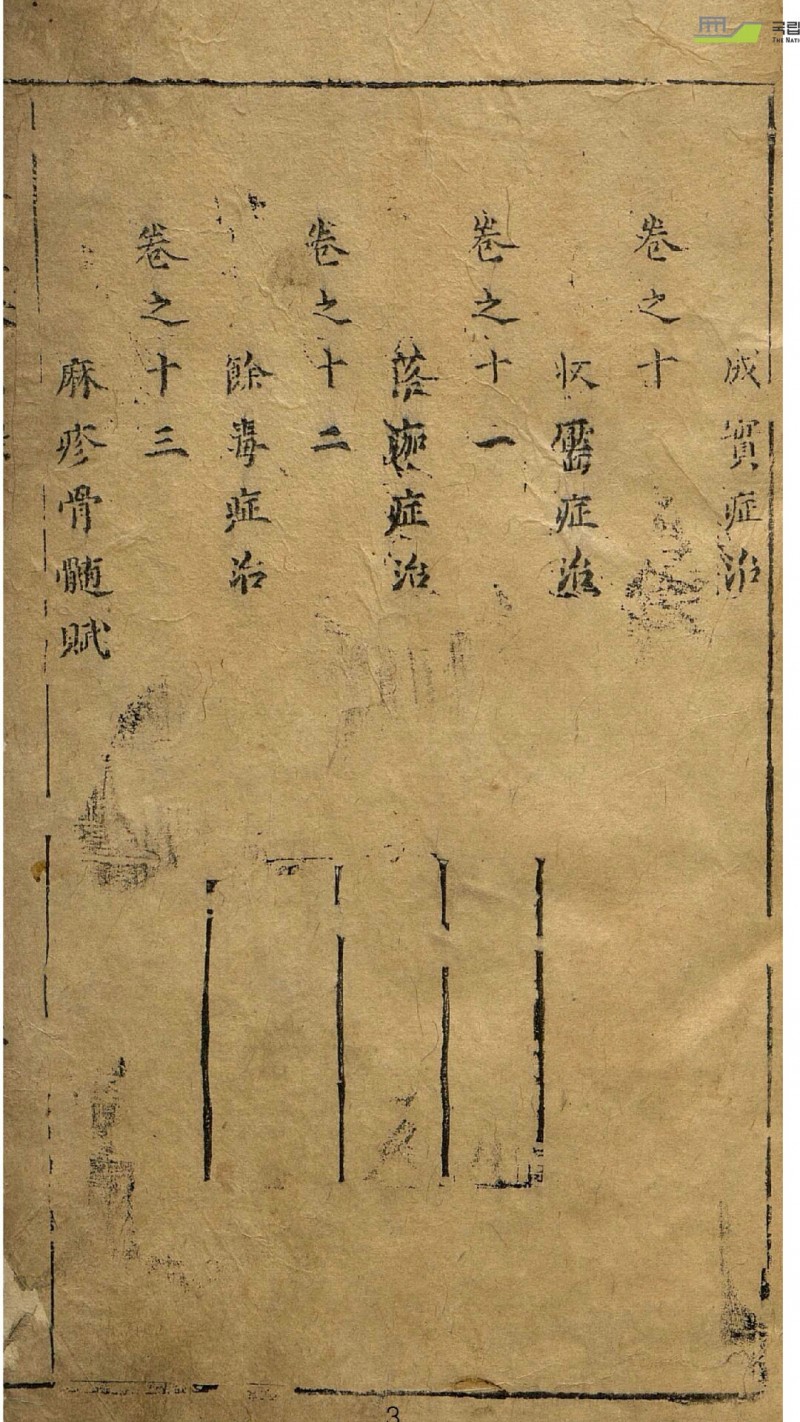 成實症治
卷之十
收靨症治
卷之十一
落痂症治
卷之十二
餘毒症治
卷之十三
麻疹骨髓賦
국립
THE NATI
3